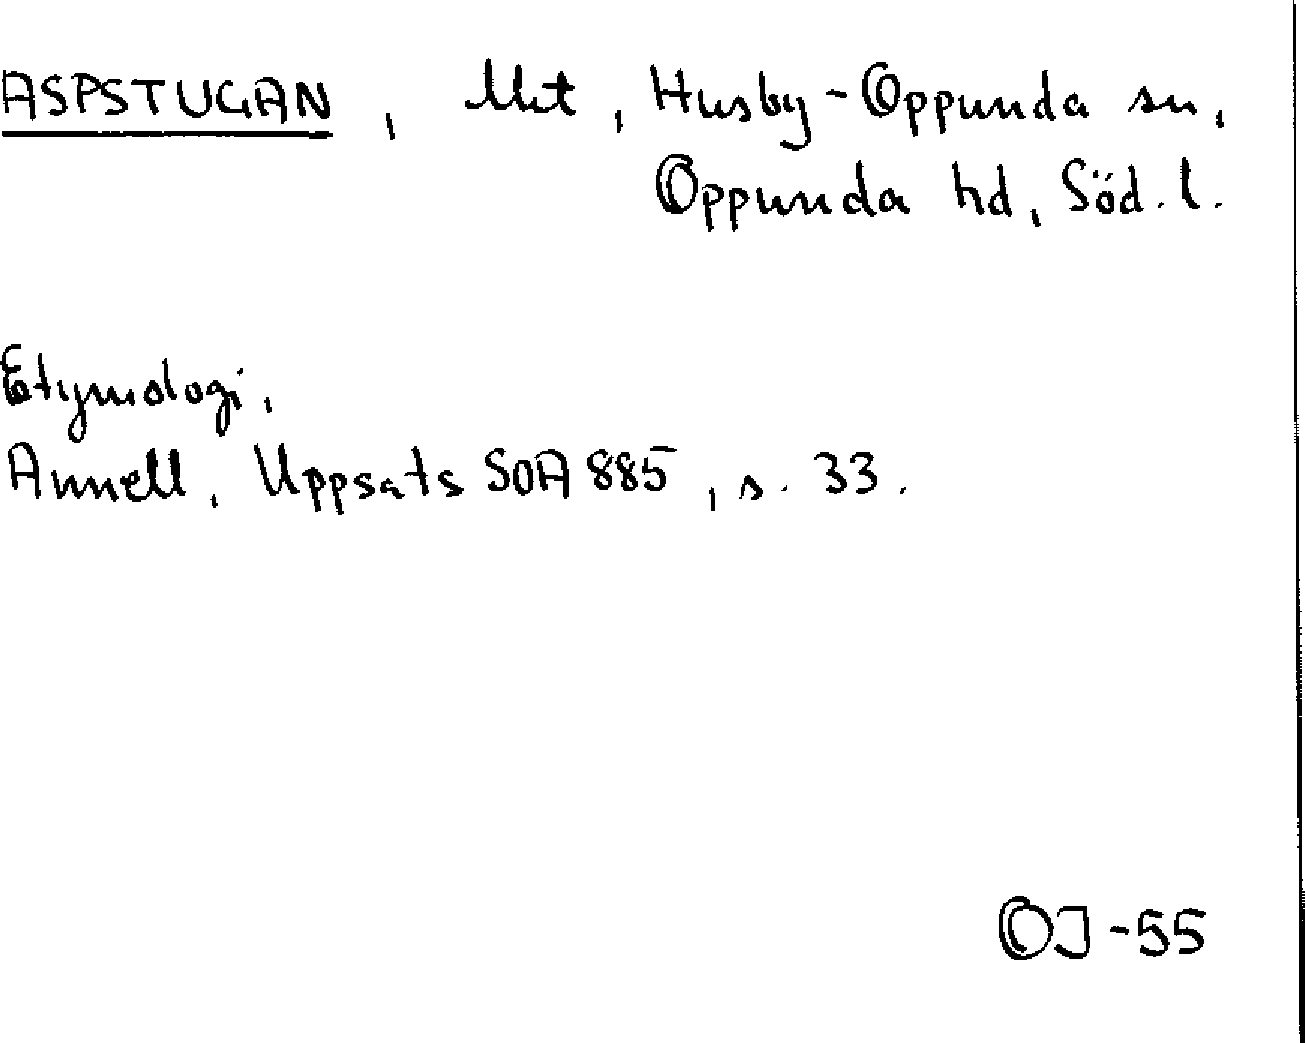 ASPSTUGAN, lht, Husby-Oppunda sn,
Oppunda hd, Söd. l.
Etymologi.
Annell, Uppsats SOA 885, s. 33.
OJ-55